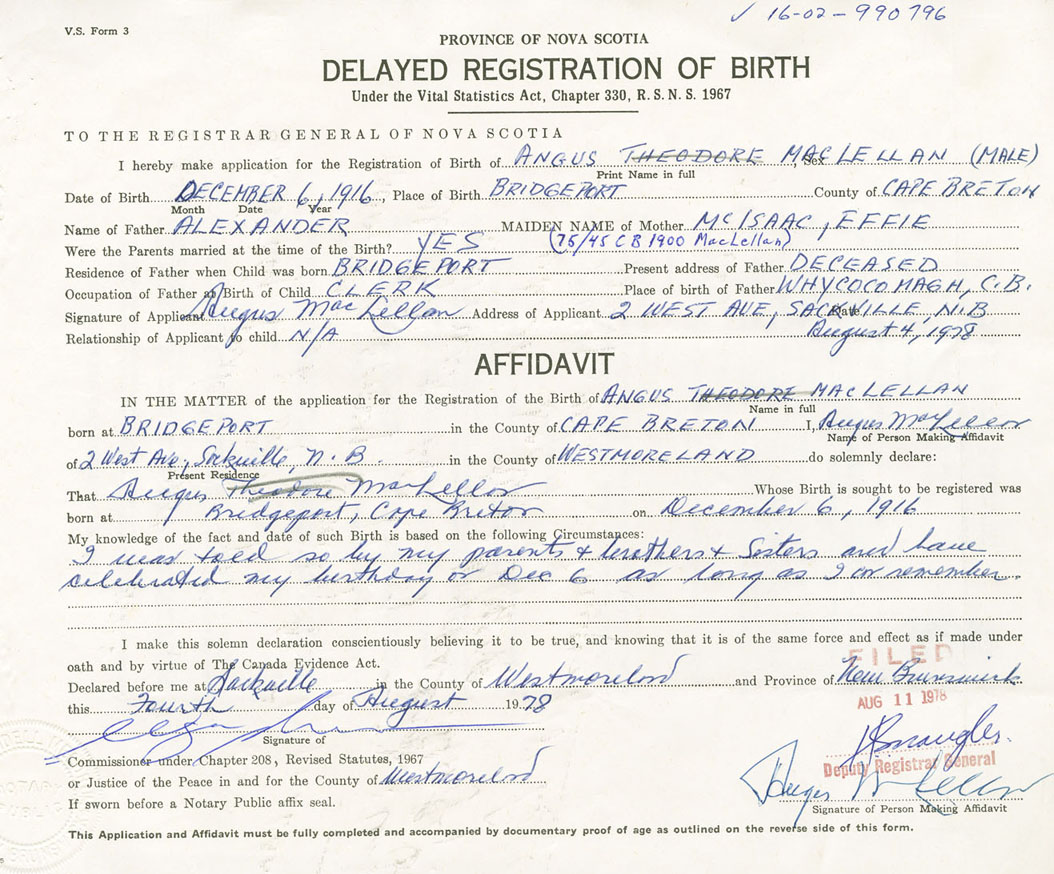 ✓ 16-02-990796
V.S. Form 3
PROVINCE OF NOVA SCOTIA
DELAYED REGISTRATION OF BIRTH
Under the Vital Statistics Act, Chapter 330, R.S.N.S. 1967
TO THE REGISTRAR GENERAL OF NOVA SCOTIA
I hereby make application for the Registration of Birth of ANGUS THEODORE MACLELLAN, Sex (MALE)
Print Name in full
Date of Birth DECEMBER 6, 1916, Place of Birth BRIDGEPORT County of CAPE BRETON
Month Date Year
Name of Father ALEXANDER MAIDEN NAME of Mother MCISAAC, EFFIE
Were the Parents married at the time of the Birth? YES (75/45 CB 1900 MacLellan)
Residence of Father when Child was born BRIDGEPORT Present address of Father DECEASED
Occupation of Father at Birth of Child CLERK Place of birth of Father WHYCOCOMAGH, C.B.
Signature of Applicant Angus MacLellan Address of Applicant 2 WEST AVE, SACKVILLE, N.B
Date
Relationship of Applicant to child N/A August 4, 1978
AFFIDAVIT
IN THE MATTER of the application for the Registration of the Birth of ANGUS THEODORE MACLELLAN
Name in full
born at BRIDGEPORT in the County of CAPE BRETON I, Angus MacLellan
Name of Person Making Affidavit
of 2 West Ave, Sackville, N.B. in the County of WESTMORELAND do solemnly declare:
Present Residence
That Angus Theodore MacLellan Whose Birth is sought to be registered was
born at Bridgeport, Cape Breton on December 6, 1916
My knowledge of the fact and date of such Birth is based on the following Circumstances:
I was toed so by my parents + brothers + Sisters and have
celebrated my birthday on Dec 6 as long as I can remember.
I make this solemn declaration conscientiously believing it to be true, and knowing that it is of the same force and effect as if made under
oath and by virtue of The Canada Evidence Act.
FILED
Declared before me at Sackville in the County of Westmorland and Province of New Brunswick
AUG 11 1978
this Fourth day of August 1978
Signature of
Commissioner under Chapter 208, Revised Statutes, 1967
Deputy Registrar General
or Justice of the Peace in and for the County of Westmorland
Angus MacLellan
Signature of Person Making Affidavit
If sworn before a Notary Public affix seal.
This Application and Affidavit must be fully completed and accompanied by documentary proof of age as outlined on the reverse side of this form.